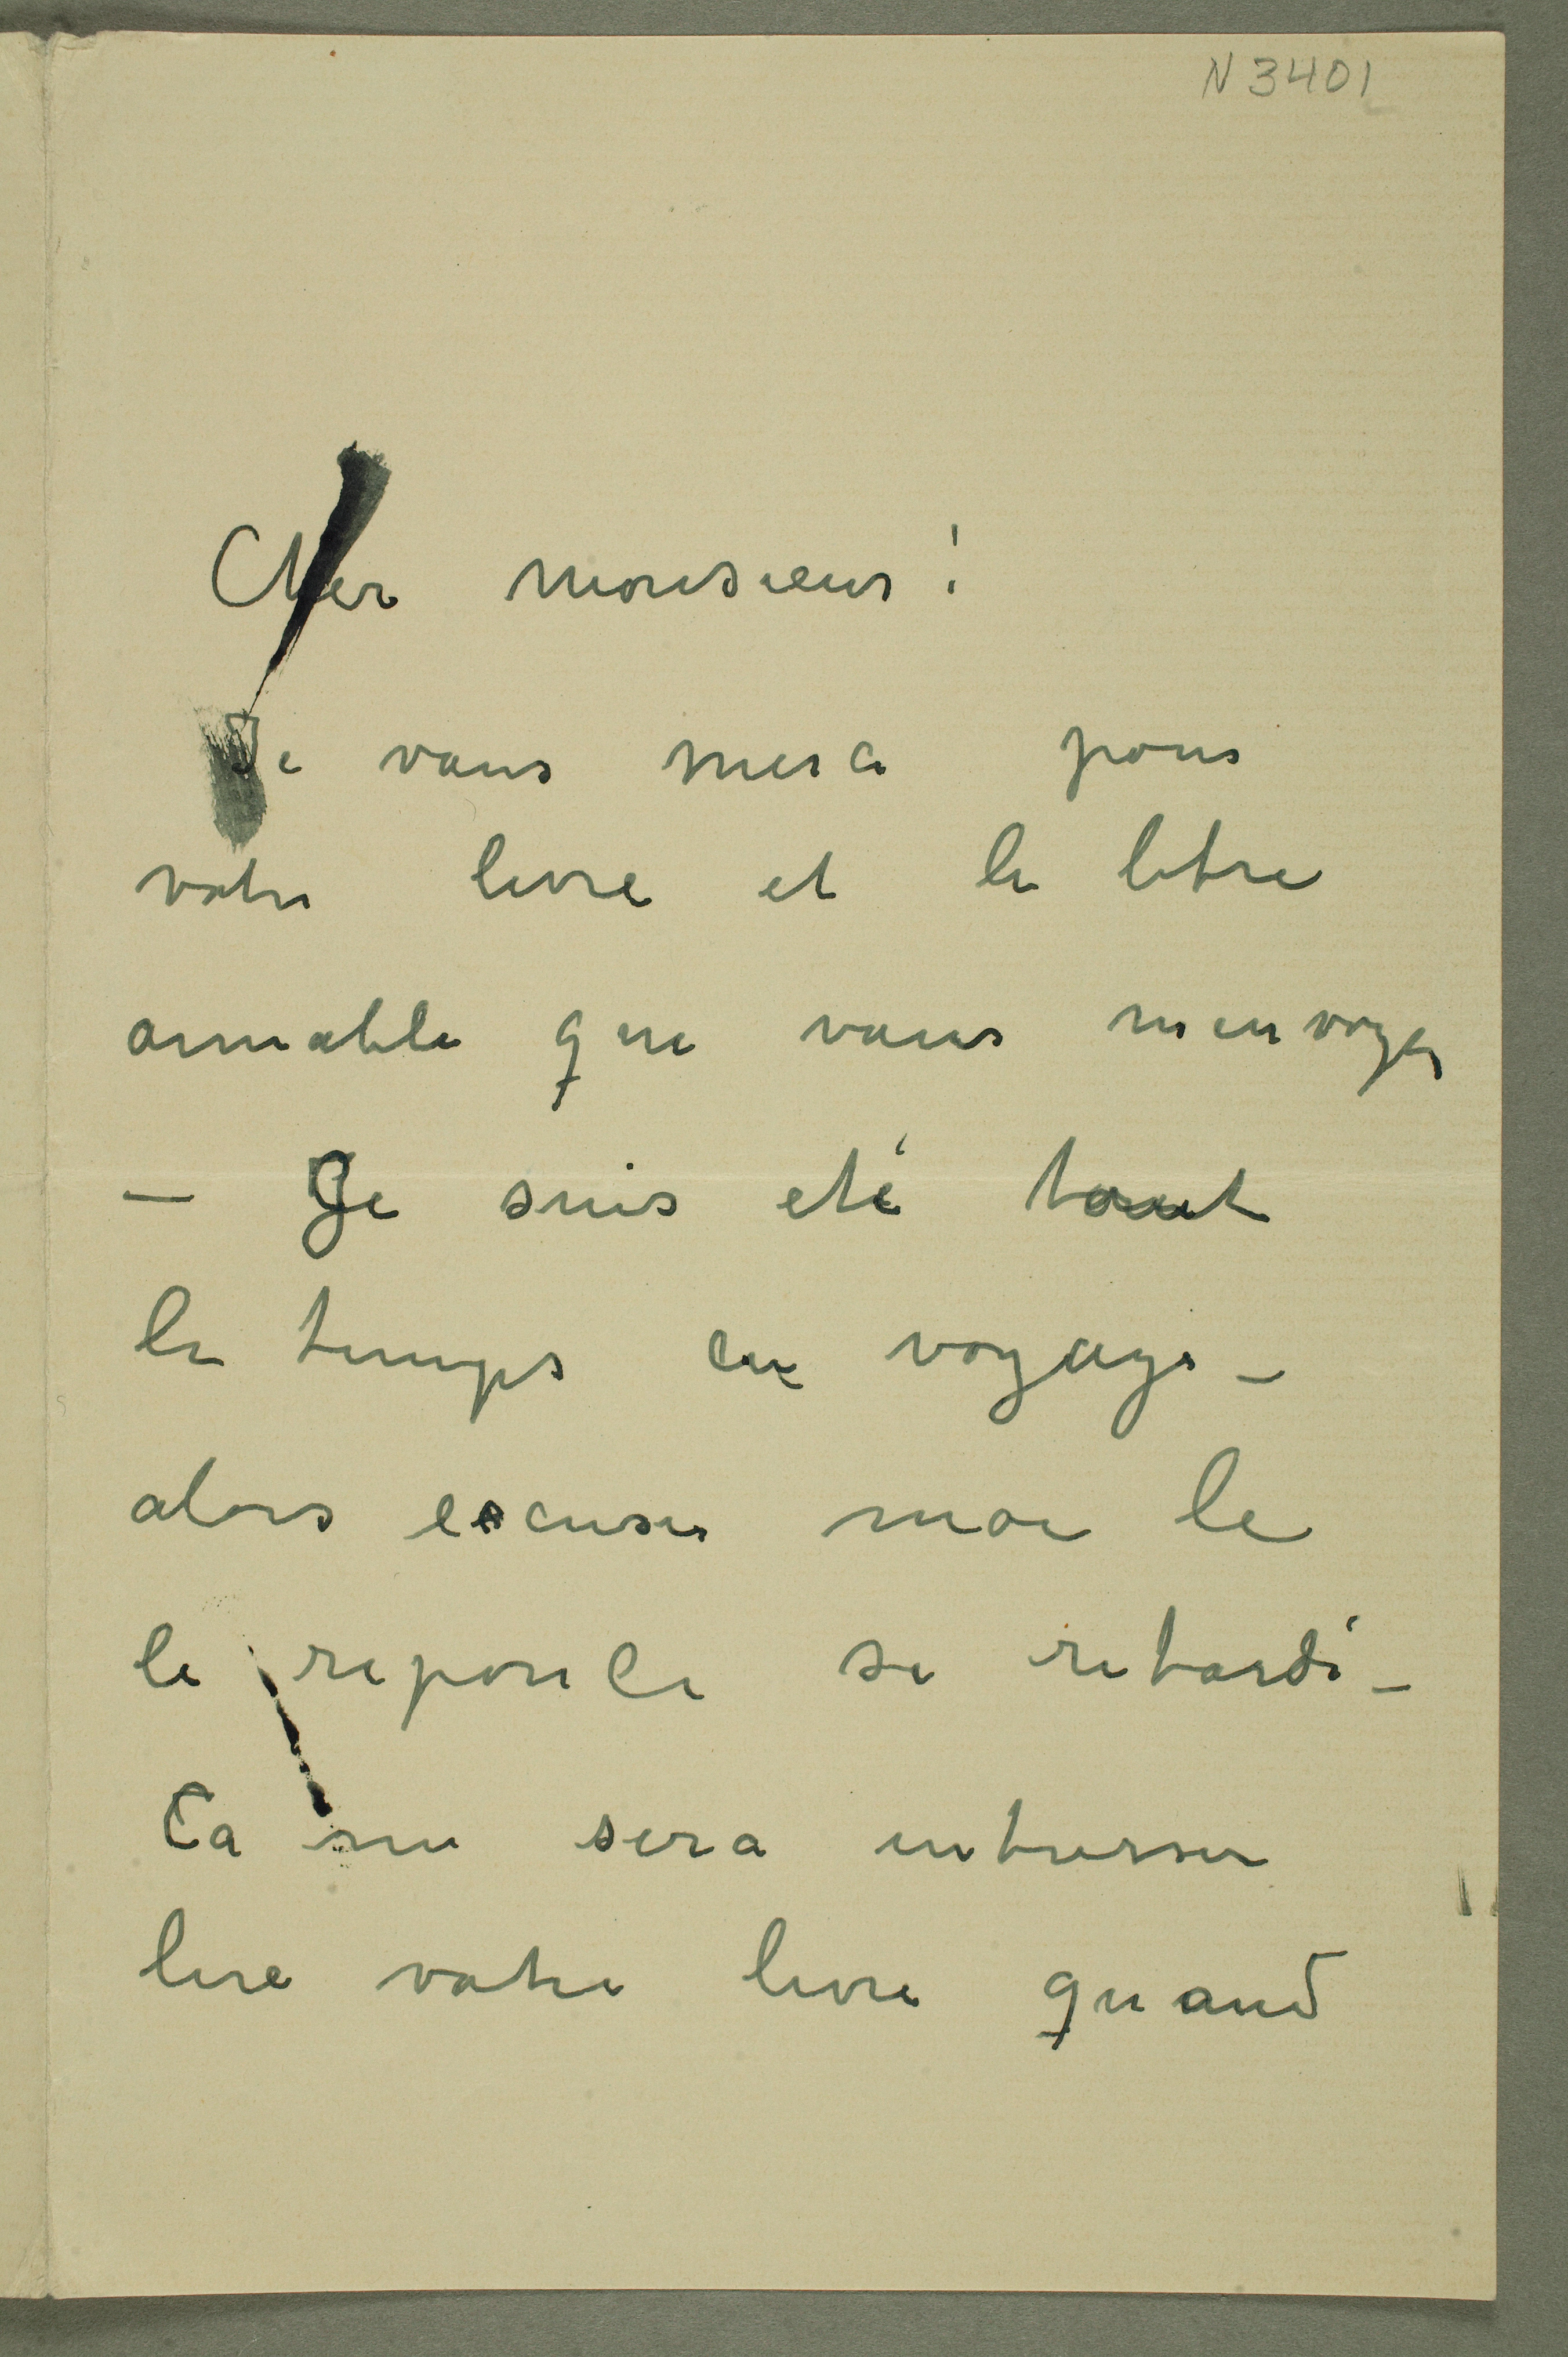 N 3401
Cher monsieur!
Je vous merci pour
votre livre et le letre
aimable que vous menvoyer
— Je suis eté tout
le temps en voyage —
alors escuser moi le
le reponce se retardé —
Ca me sera intresser
lire votre livre quand